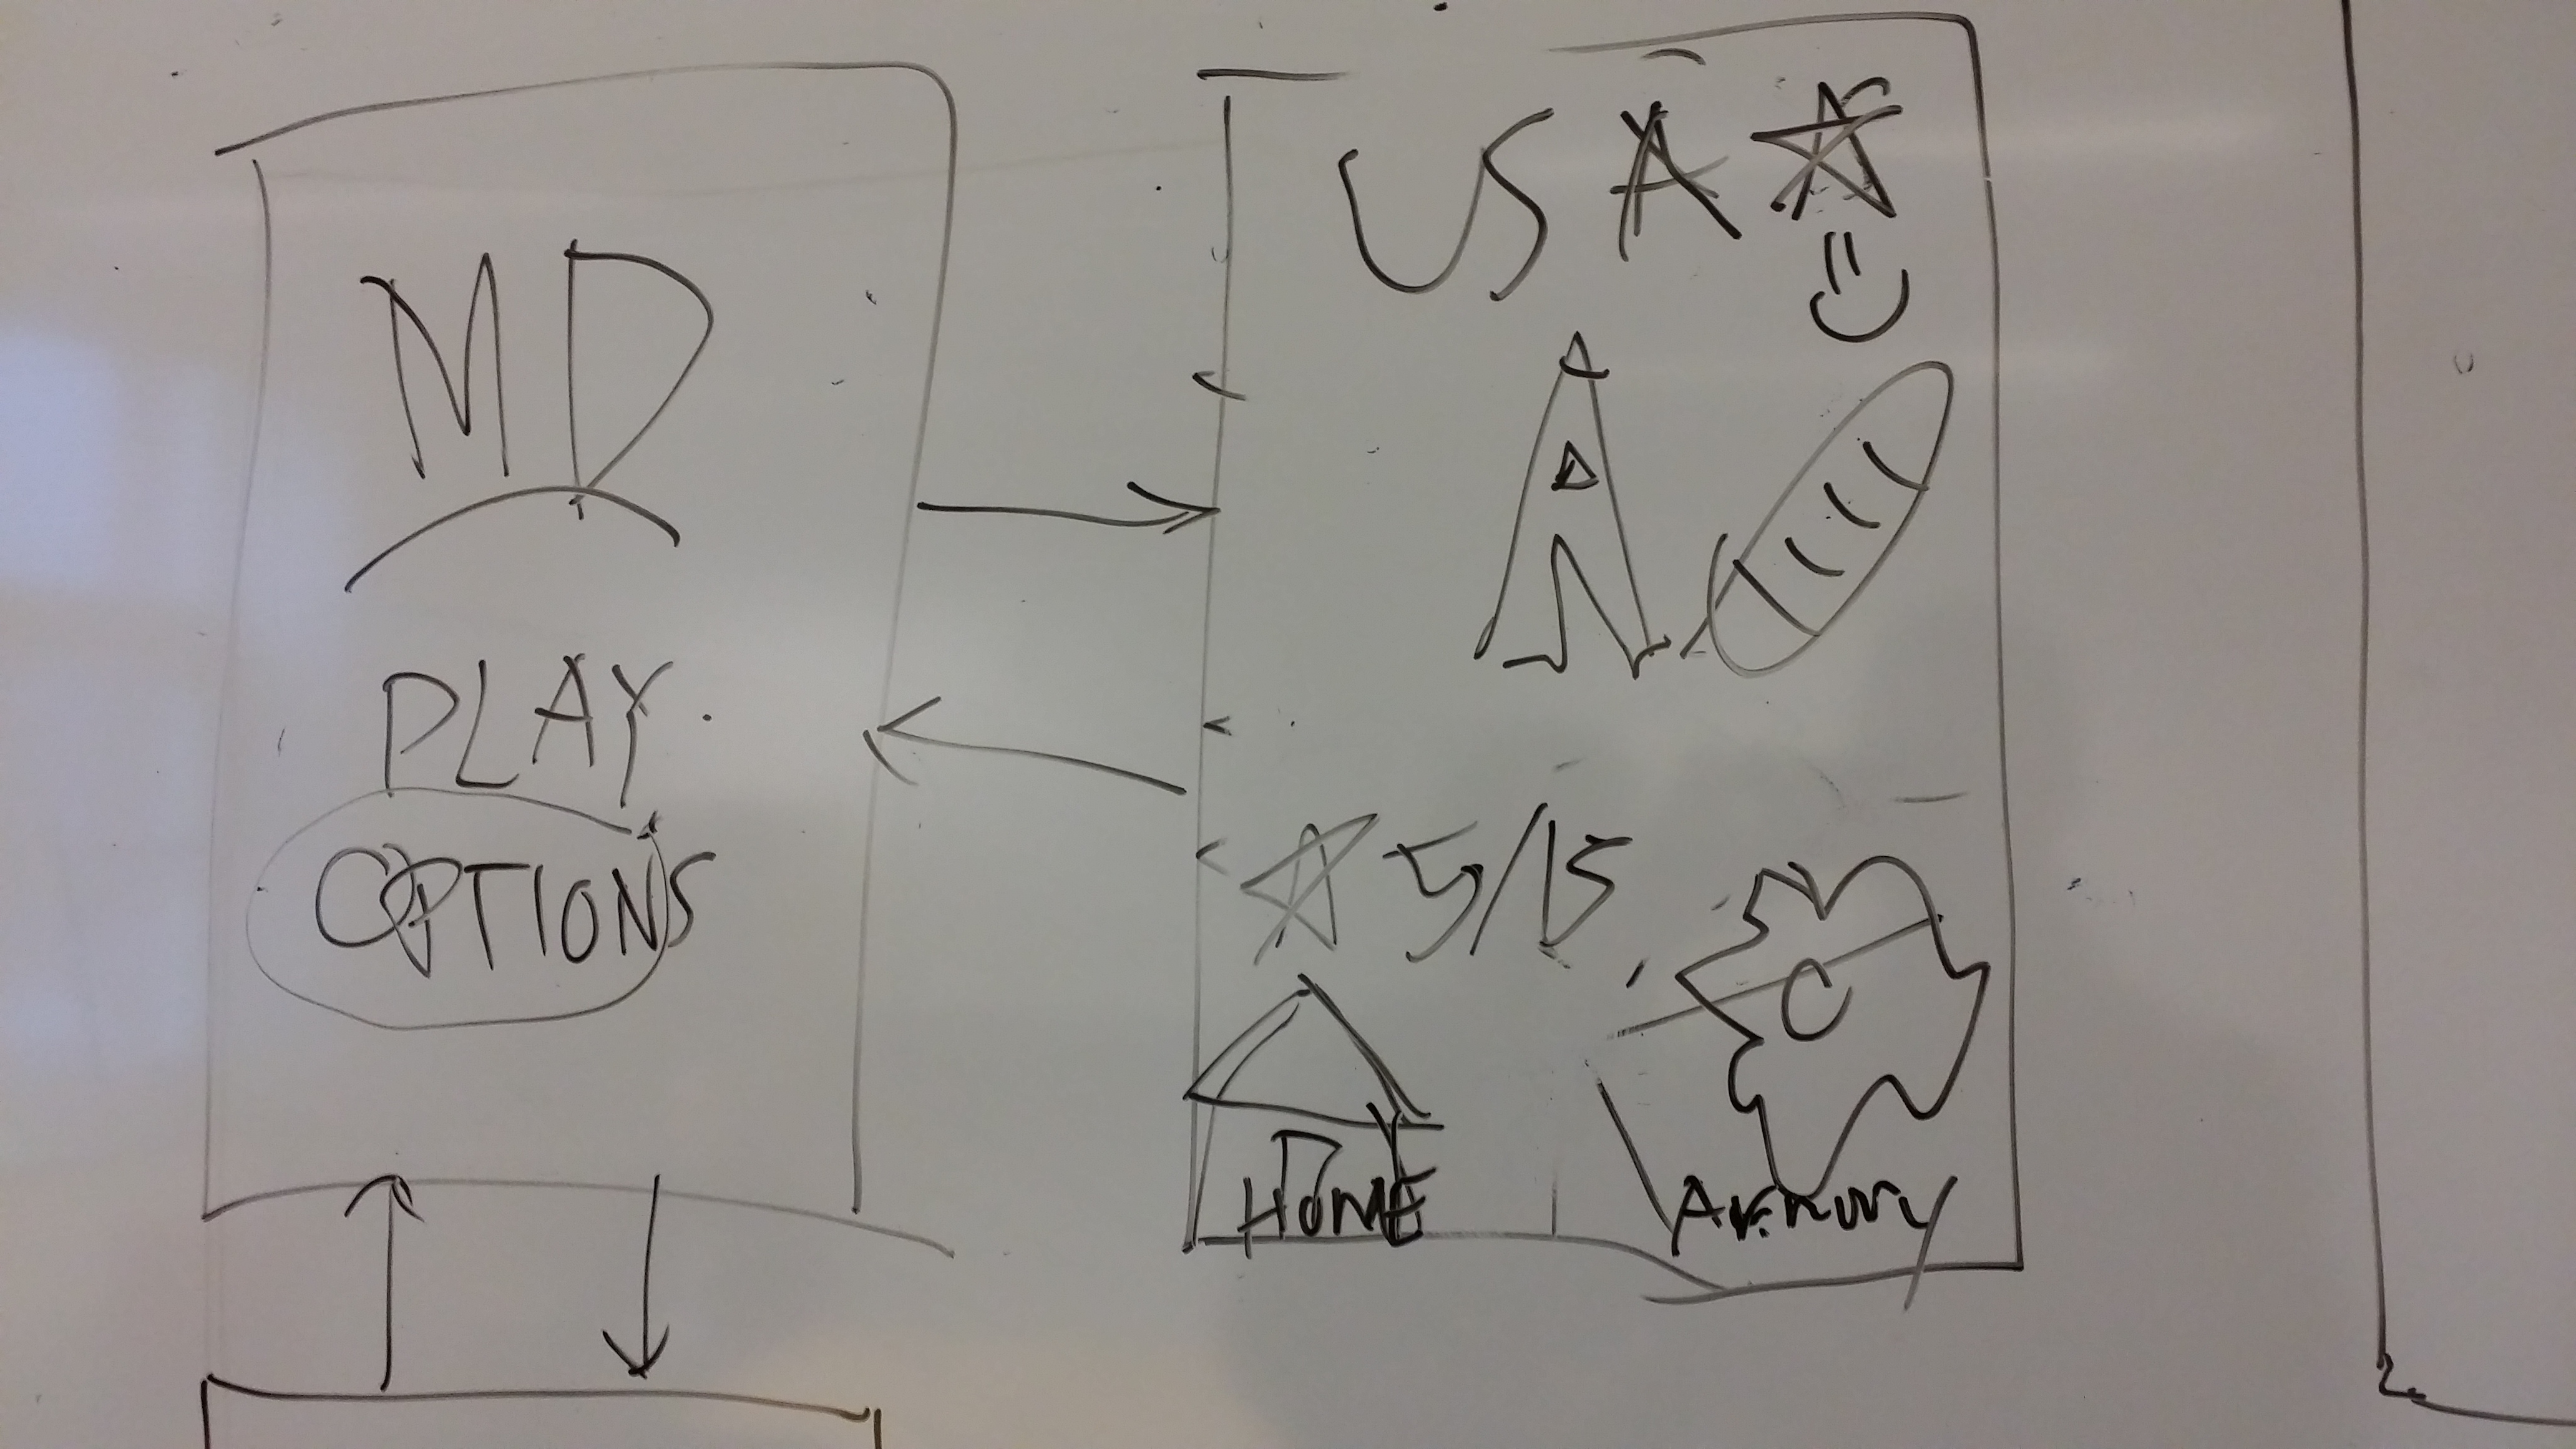 MD
PLAY
OPTIONS
USA
5/15
HOME
Armory